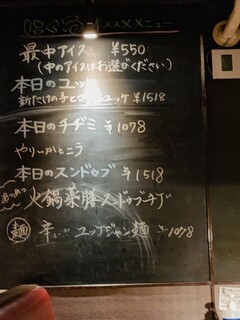 最中アイス ¥550
(中のアイスはお選びください)
本日のユッケ
新たけの子と ユッケ ¥1518
本日のチヂミ ¥1078
やりいかと
本日のスンドゥブ ¥1518
火鍋薬膳スンドゥブチゲ
麺 辛い ユッケジャン麺 ¥1078